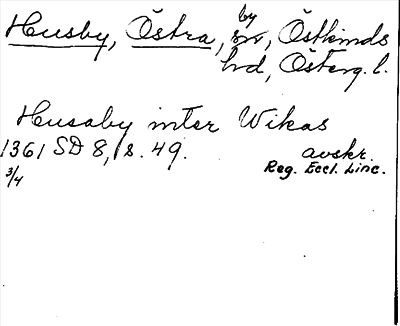 Husby, Östra, by, Östkinds
hd, Österg. l.
Husaby inter Wikas
1361 SD 8, s. 49. avskr.
3/4 Reg. Eccl. Linc.